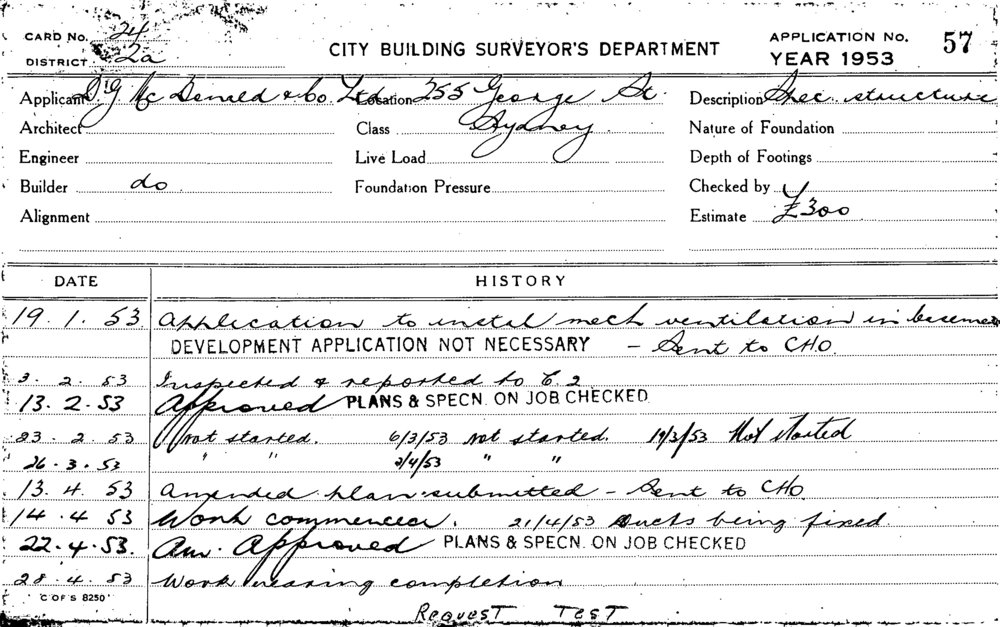 CARD No. 24
CITY BUILDING SURVEYOR'S DEPARTMENT
APPLICATION No. 57
DISTRICT 2a
YEAR 1953
Applicant D G McDonald & Co. Ltd. Location 255 George St. Description Spec. structure
Architect Class Sydney Nature of Foundation
Engineer Live Load Depth of Footings
Builder do Foundation Pressure Checked by
Alignment Estimate £300
DATE HISTORY
19. 1. 53 Application to instal mech ventilation in basement
DEVELOPMENT APPLICATION NOT NECESSARY - Sent to CHO.
3. 2. 53 Inspected & reported to C. 2
13. 2. 53 Approved PLANS & SPECN. ON JOB CHECKED
23. 2. 53 Not started. 6/3/53 not started. 19/3/53 Not started
26. 3. 53 " " 2/4/53 " "
13. 4. 53 Amended plan submitted - Sent to CHO
14. 4. 53 Work commenced. 21/4/53 Ducts being fixed
22. 4. 53. Am. Approved PLANS & SPECN. ON JOB CHECKED
28. 4. 53 Work nearing completion
C OF S 8250
REQUEST TEST